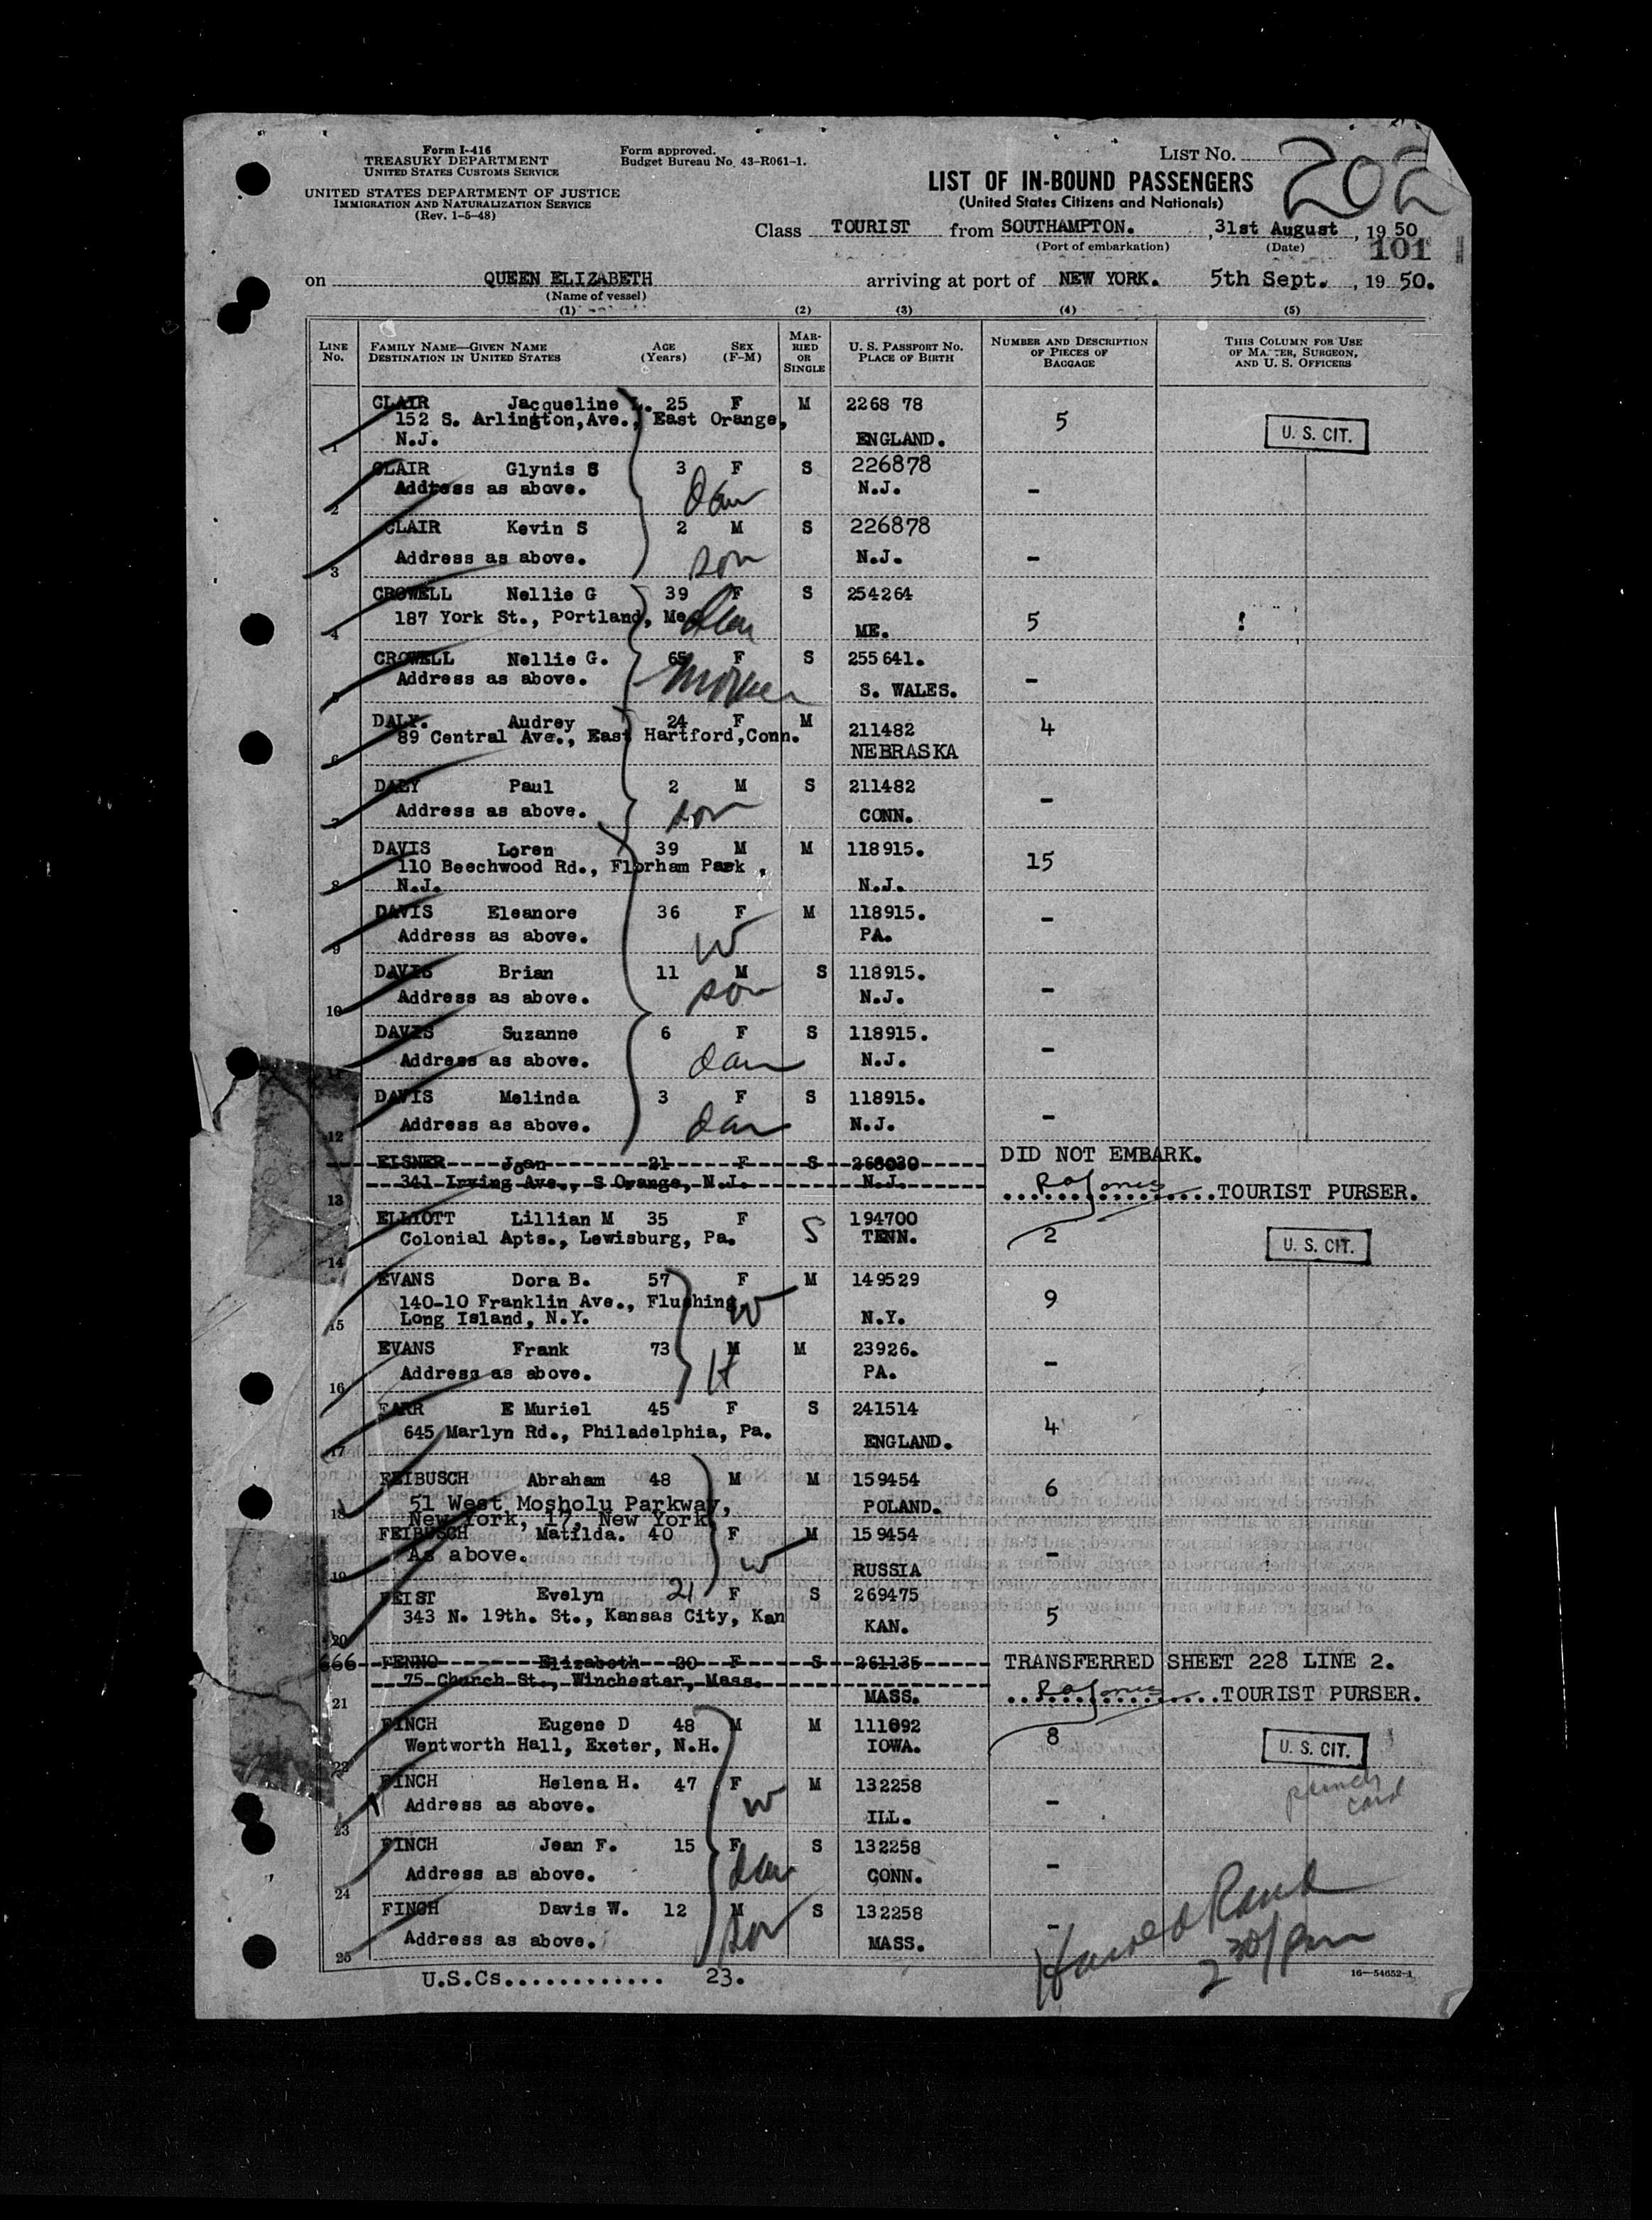 Form I-416
TREASURY DEPARTMENT
UNITED STATES CUSTOMS SERVICE
UNITED STATES DEPARTMENT OF JUSTICE
IMMIGRATION AND NATURALIZATION SERVICE
(Rev. 1-5-48)
Form approved.
Budget Bureau No. 43-R061-1.
LIST NO. 202
LIST OF IN-BOUND PASSENGERS
(United States Citizens and Nationals)
Class TOURIST from SOUTHAMPTON. , 31st August , 19 50
(Port of embarkation) (Date) 101
on QUEEN ELIZABETH arriving at port of NEW YORK. 5th Sept. , 19 50.
(Name of vessel)
(1) (2) (3) (4) (5)
LINE NO. FAMILY NAME—GIVEN NAME DESTINATION IN UNITED STATES AGE (Years) SEX (F-M) MARRIED OR SINGLE U. S. PASSPORT NO. PLACE OF BIRTH NUMBER AND DESCRIPTION OF PIECES OF BAGGAGE THIS COLUMN FOR USE OF MASTER, SURGEON, AND U. S. OFFICERS
CLAIR Jacqueline L. 25 F M 2268 78 5
152 S. Arlington,Ave., East Orange, U. S. CIT.
1 N.J. ENGLAND.
CLAIR Glynis S 3 F S 226878
Address as above. dau N.J. -
2
CLAIR Kevin S 2 M S 226878
Address as above. son N.J. -
3
CROWELL Nellie G 39 F S 254264
187 York St., Portland, Me. dau 5
4 ME.
CROWELL Nellie G. 65 F S 255641.
Address as above. Mother S. WALES. -
5
DALY. Audrey 24 F M 211482 4
89 Central Ave., East Hartford,Conn.
6 NEBRASKA
DALY Paul 2 M S 211482
Address as above. son CONN. -
7
DAVIS Loren 39 M M 118915. 15
110 Beechwood Rd., Florham Park ,
8 N.J. N.J.
DAVIS Eleanore 36 F M 118915. -
Address as above. W PA.
9
DAVIS Brian 11 M S 118915.
Address as above. son N.J. -
10
DAVIS Suzanne 6 F S 118915.
Address as above. dau N.J. -
DAVIS Melinda 3 F S 118915.
Address as above. dau N.J. -
12
EISNER Joan 21 F S 268030 DID NOT EMBARK.
341 Irving Ave., S Orange, N.J. N.J.
13 TOURIST PURSER.
ELLIOTT Lillian M 35 F S 194700 2
Colonial Apts., Lewisburg, Pa. TENN. U. S. CIT.
14
EVANS Dora B. 57 F M 149529
140-10 Franklin Ave., Flushing, W 9
15 Long Island, N.Y. N.Y.
EVANS Frank 73 M M 23926.
Address as above. H PA. -
16
FARR E Muriel 45 F S 241514
645 Marlyn Rd., Philadelphia, Pa. ENGLAND. 4
17
FEIBUSCH Abraham 48 M M 159454 6
51 West Mosholu Parkway, POLAND.
18 New York, 17, New York
FEIBUSCH Matilda. 40 F M 159454
As above. W RUSSIA -
19
FEIST Evelyn 21 F S 269475
343 N. 19th. St., Kansas City, Kan KAN. 5
20
666 FENNO Elizabeth 20 F S 261135 TRANSFERRED SHEET 228 LINE 2.
75 Church St., Winchester, Mass.
21 MASS. TOURIST PURSER.
FINCH Eugene D 48 M M 111092 8
Wentworth Hall, Exeter, N.H. IOWA. U. S. CIT.
22
FINCH Helena H. 47 F M 132258 punch card
Address as above. W ILL. -
23
FINCH Jean F. 15 F S 132258
Address as above. dau CONN. -
24
FINCH Davis W. 12 M S 132258
Address as above. son MASS. -
25
U.S.Cs............. 23.
2 30/pm
16—54652-1